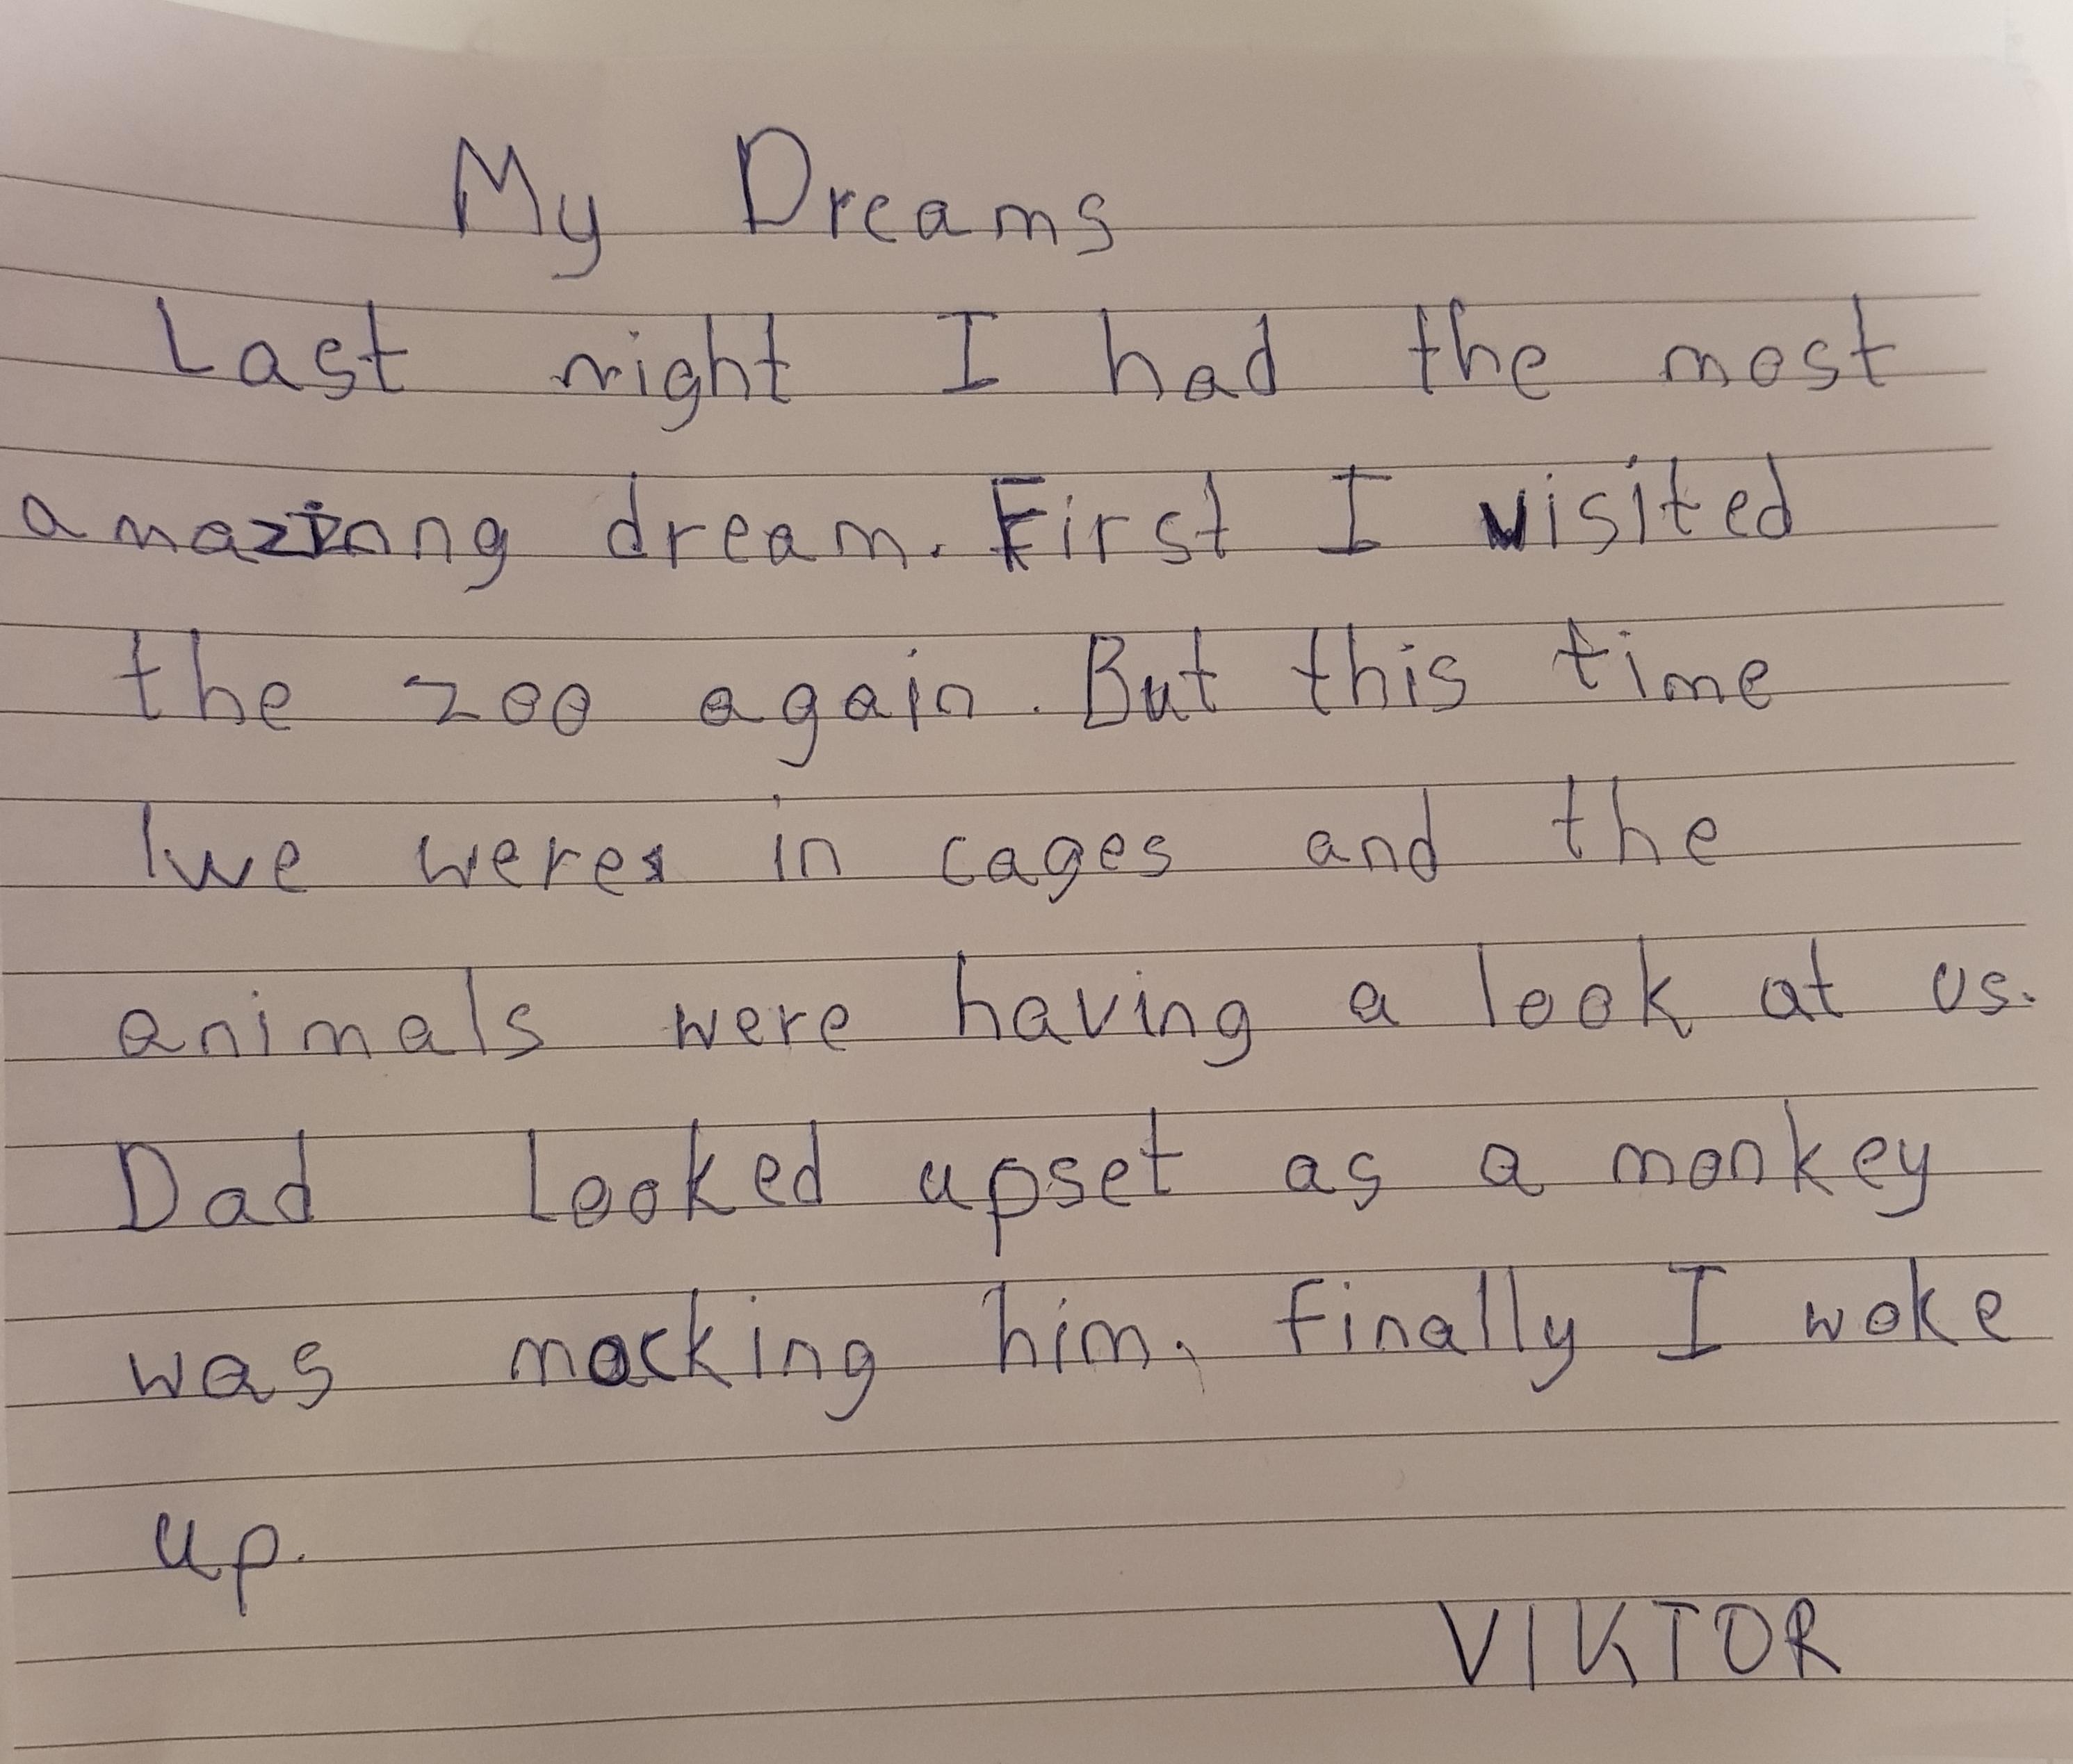 My Dreams
Last night I had the most
amazinng dream. First I visited
the zoo again. But this time
we were in cages and the
animals were having a look at us.
Dad looked upset as a monkey
was mocking him. finally I woke
up.
VIKTOR